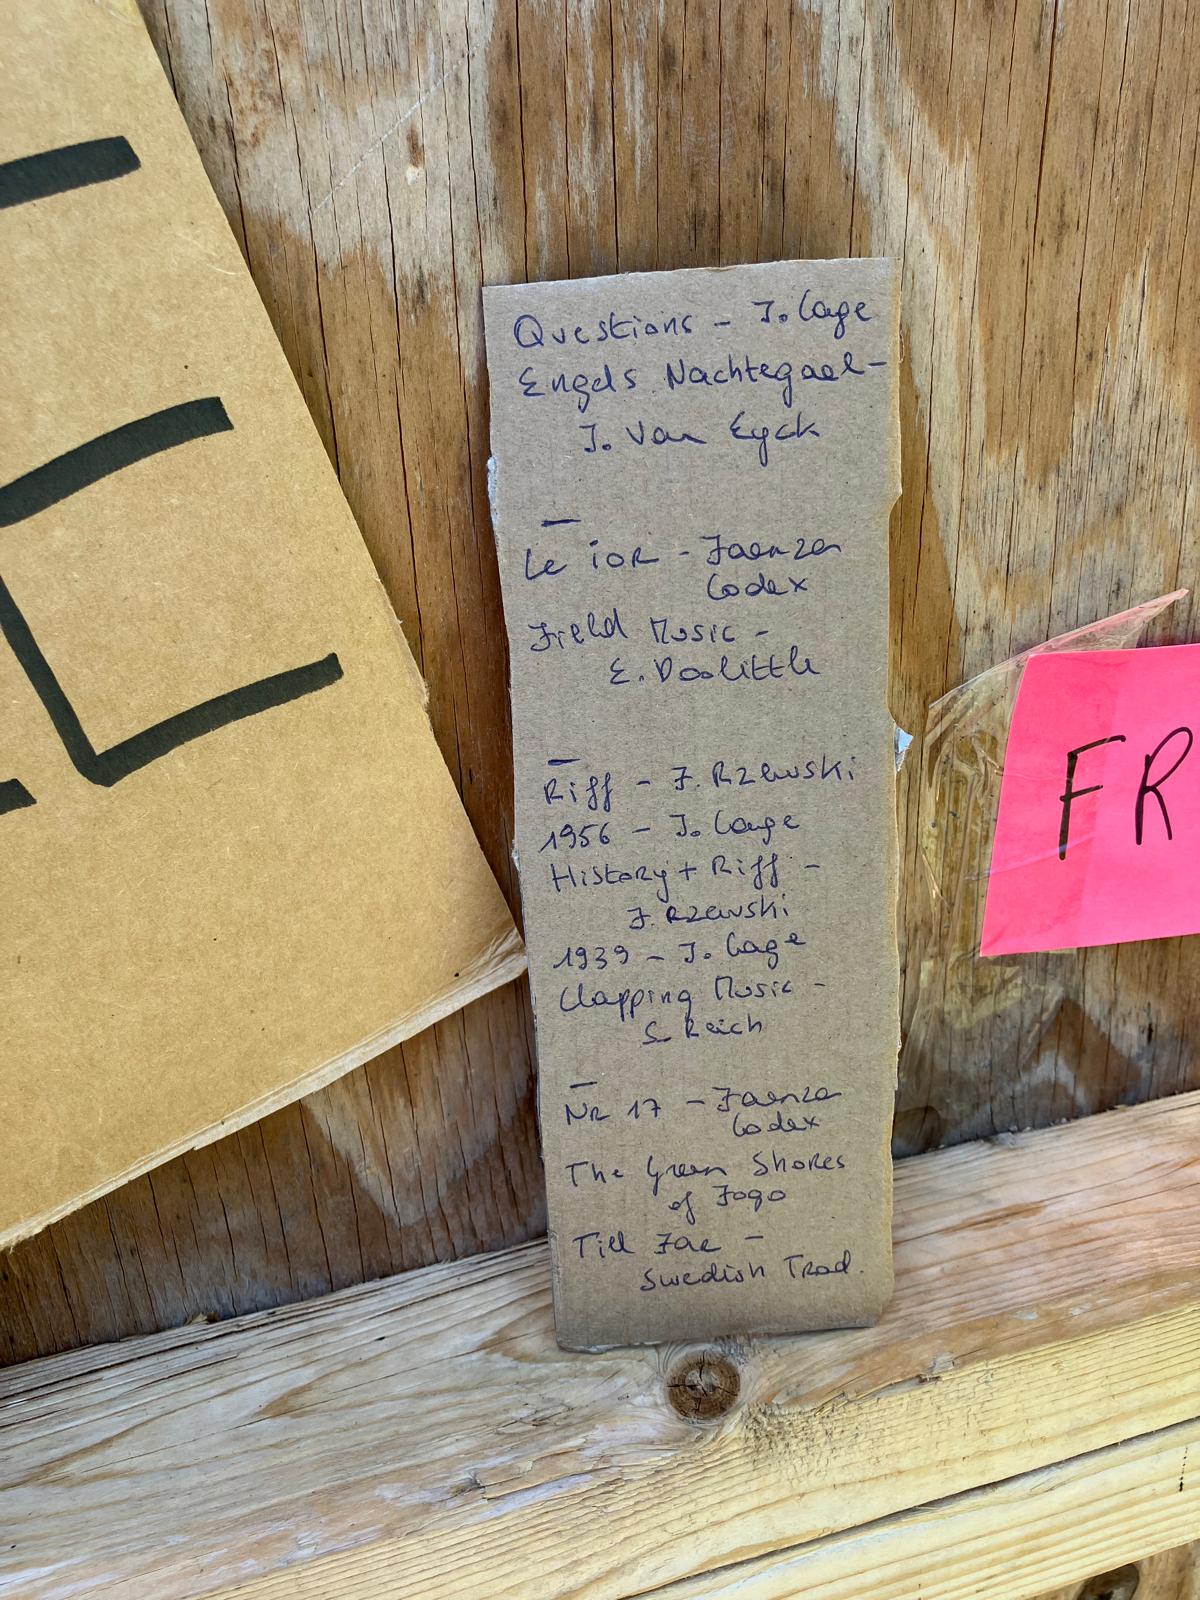 Questions - J. Cage
Engels Nachtegael -
J. Van Eyck
—
Le ior - Faenza
Codex
Field Music -
E. Doolittle
—
Riff - F. Rzewski
1956 - J. Cage
History + Riff -
F. Rzewski
1939 - J. Cage
Clapping Music -
S. Reich
—
Nr 17 - Faenza
Codex
The Green Shores
of Fogo
Till Far -
Swedish Trad.
FR